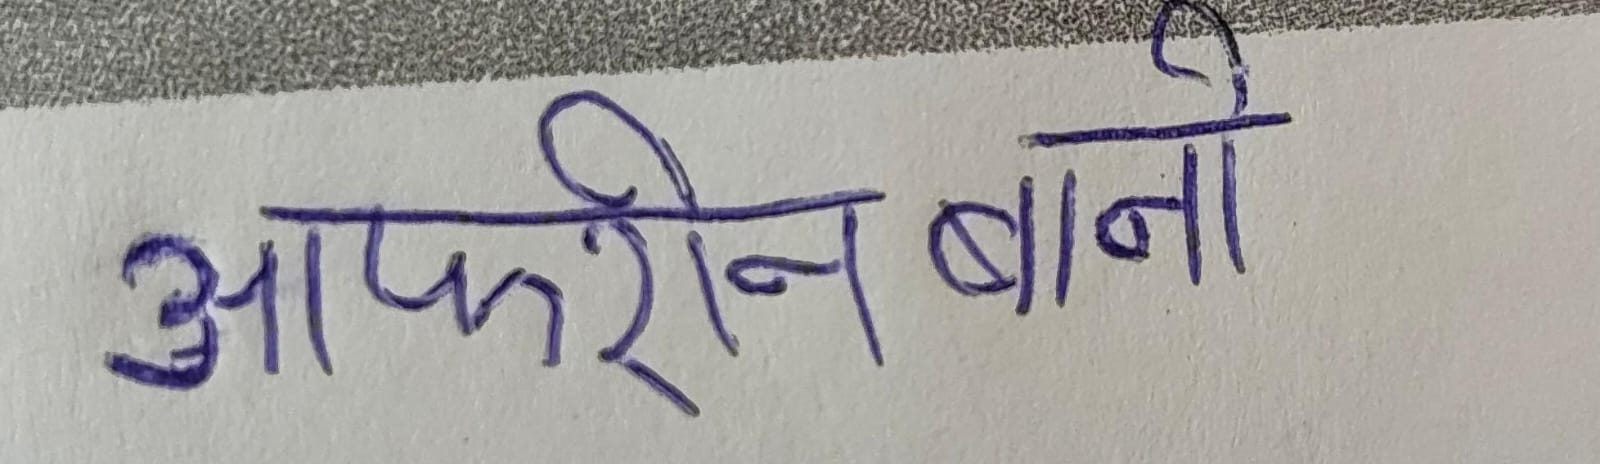 आफरीन बानो